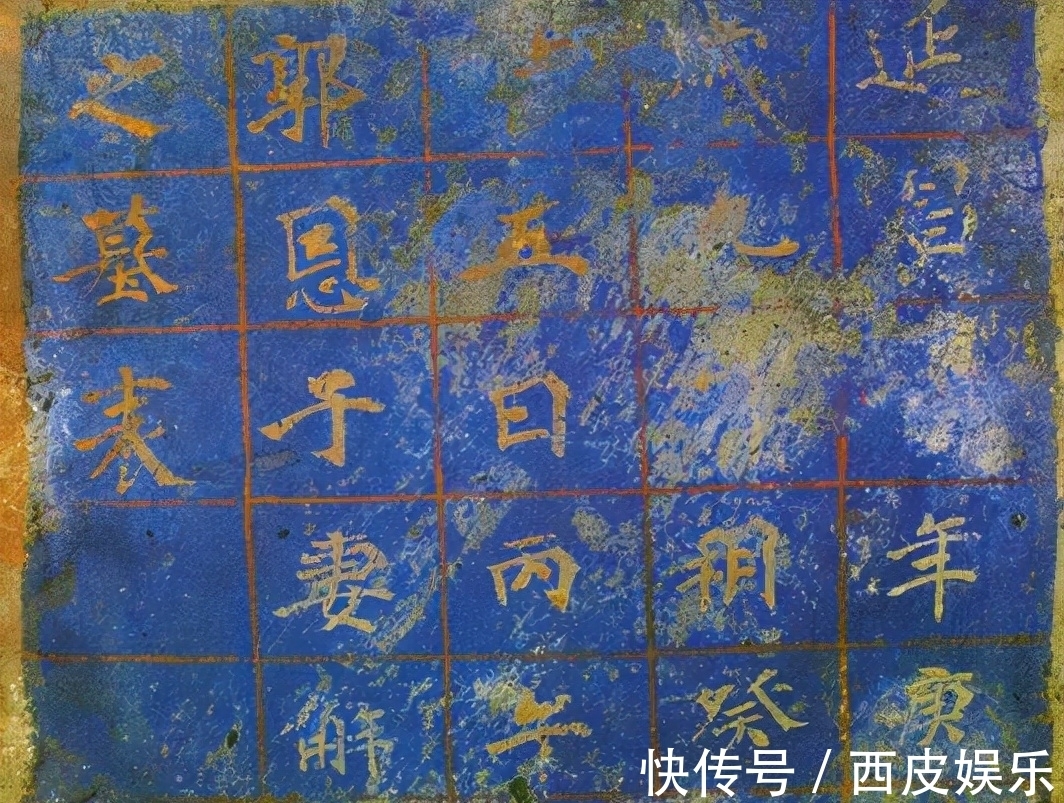 延昌年庚
九朔癸
五日丙午
郭恩子妻解
之墓表
快传号 / 西皮娱乐